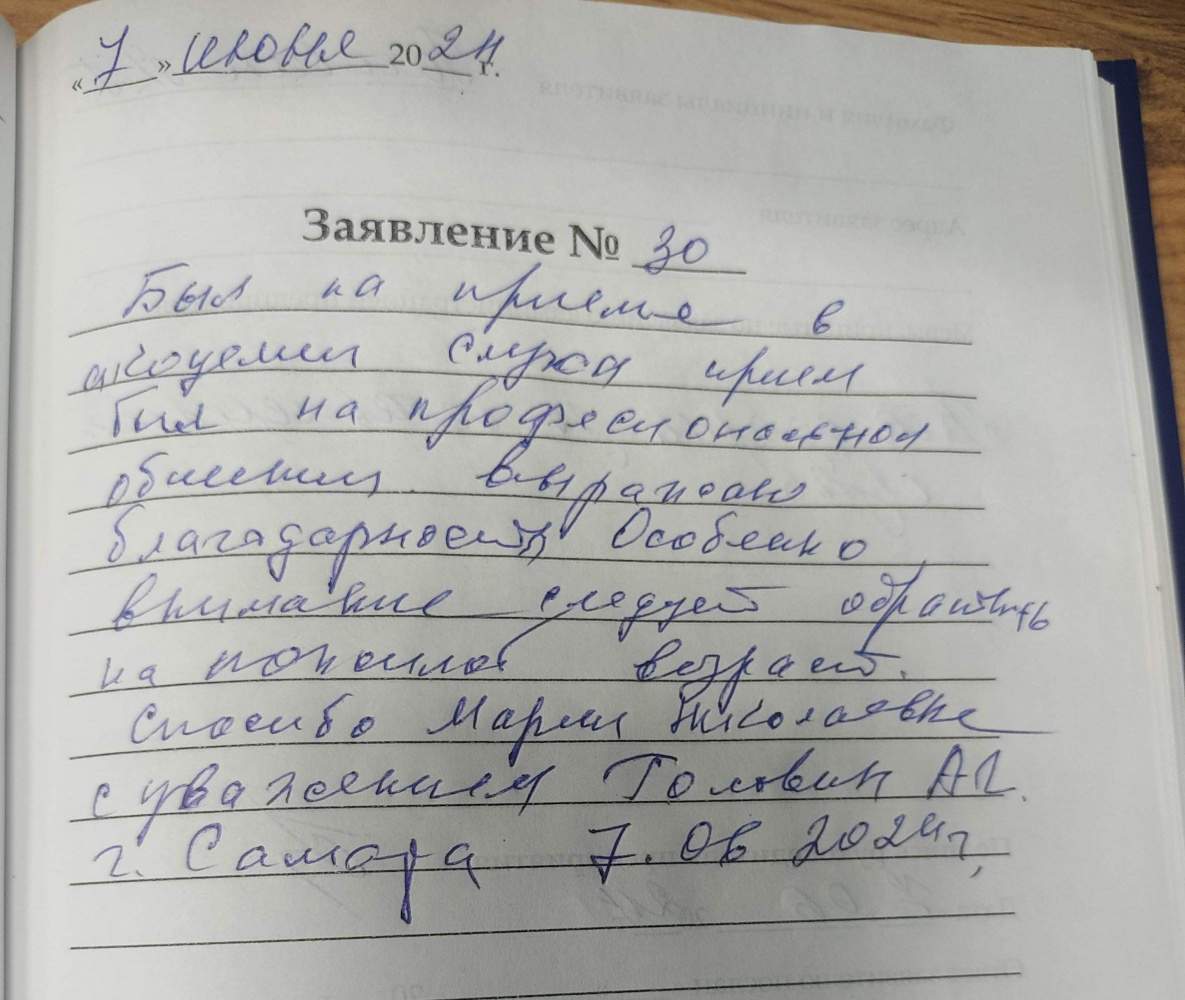 «7» июня 2024 г.
Заявление № 30
Был на приеме в
академии слуха прием
был на професиональном
общении выражаю
благадарность Особенно
внимание следует обратить
на пожилой возраст.
Спасибо Марии Николаевне
с уважением Головин А.Г.
г. Самара 7.06 2024 г,